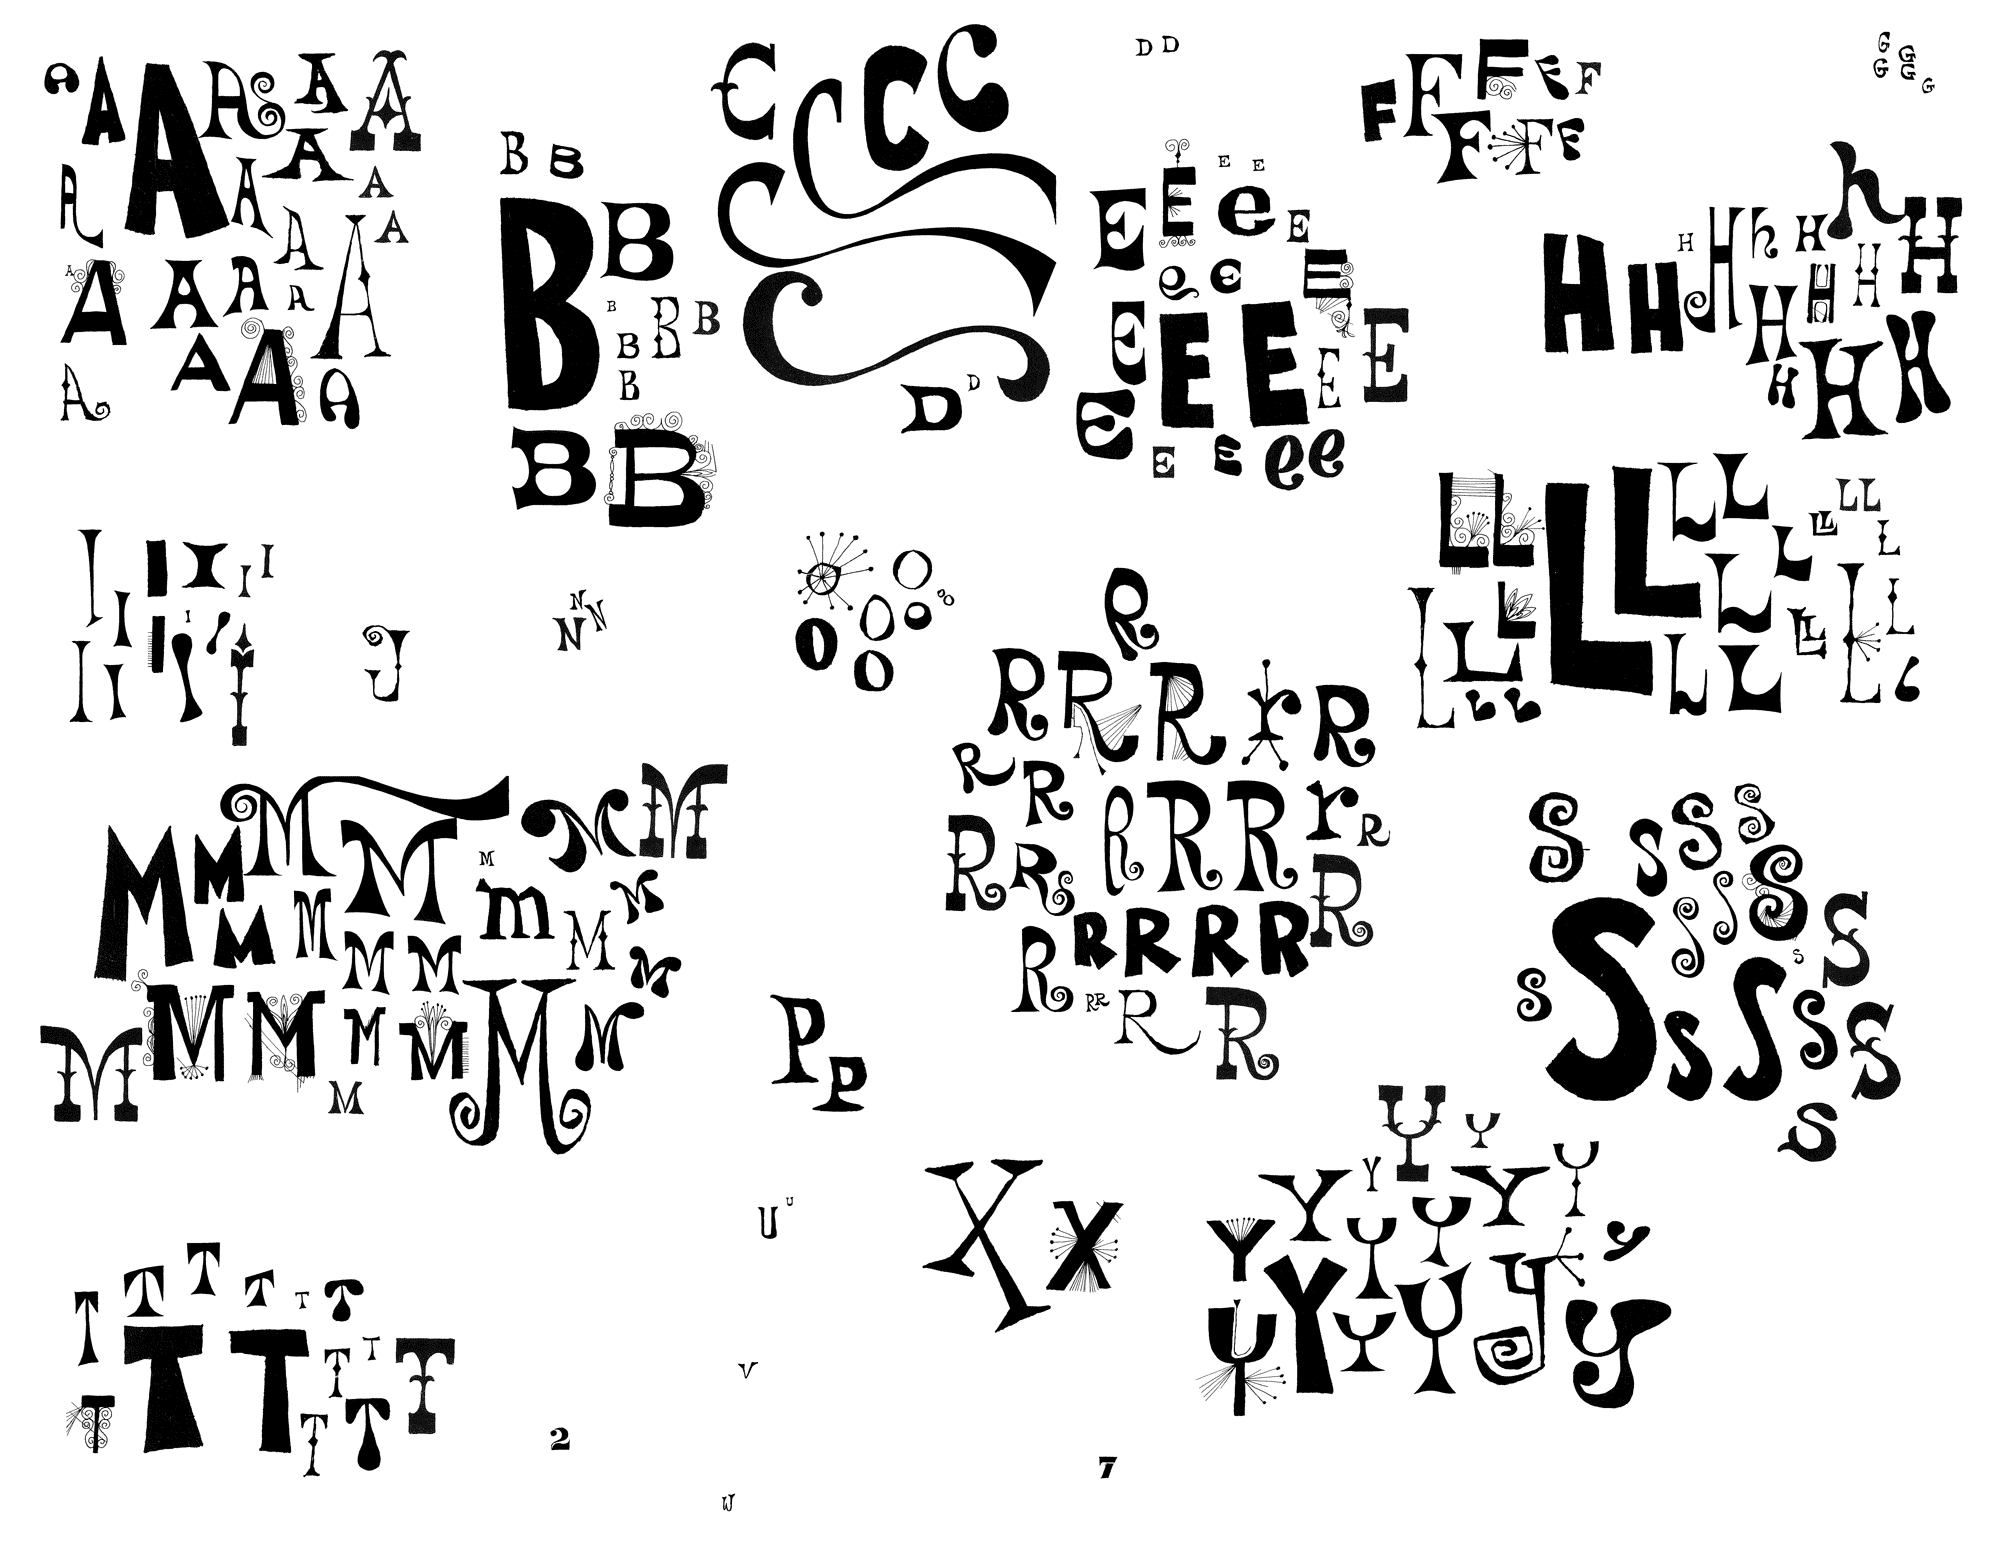 A A A A A A A
A A A A A A A A
A A A A A A
A A A A
B B
B B
B B B B
B
B B
C C C C
C
C
D D
D D
E E E
E E e E
e e E
E E E E E
E E E e e
F F F F F
F F F
G G
G G G G
h
H H H H h H H
H H H
H H H H
I I I I I
I I I I
I I I I
J
L L L L L L L L L
L L L L
L L L L L L
L L L L L
M M M
M M M M m
M M M M M
M M M M M M M
M
N N
N
O O
O O O O
O O
P
P
R
R R R r R
R R
R R R R R r R
R
R R R R R R
R R R R
S S S S
S S S
S S S
S S S S S
S
T T T T T T
T T T T T
T T T T
U U
V
W
X X
Y Y
Y Y Y Y
Y Y Y Y
Y Y Y y y
2
7